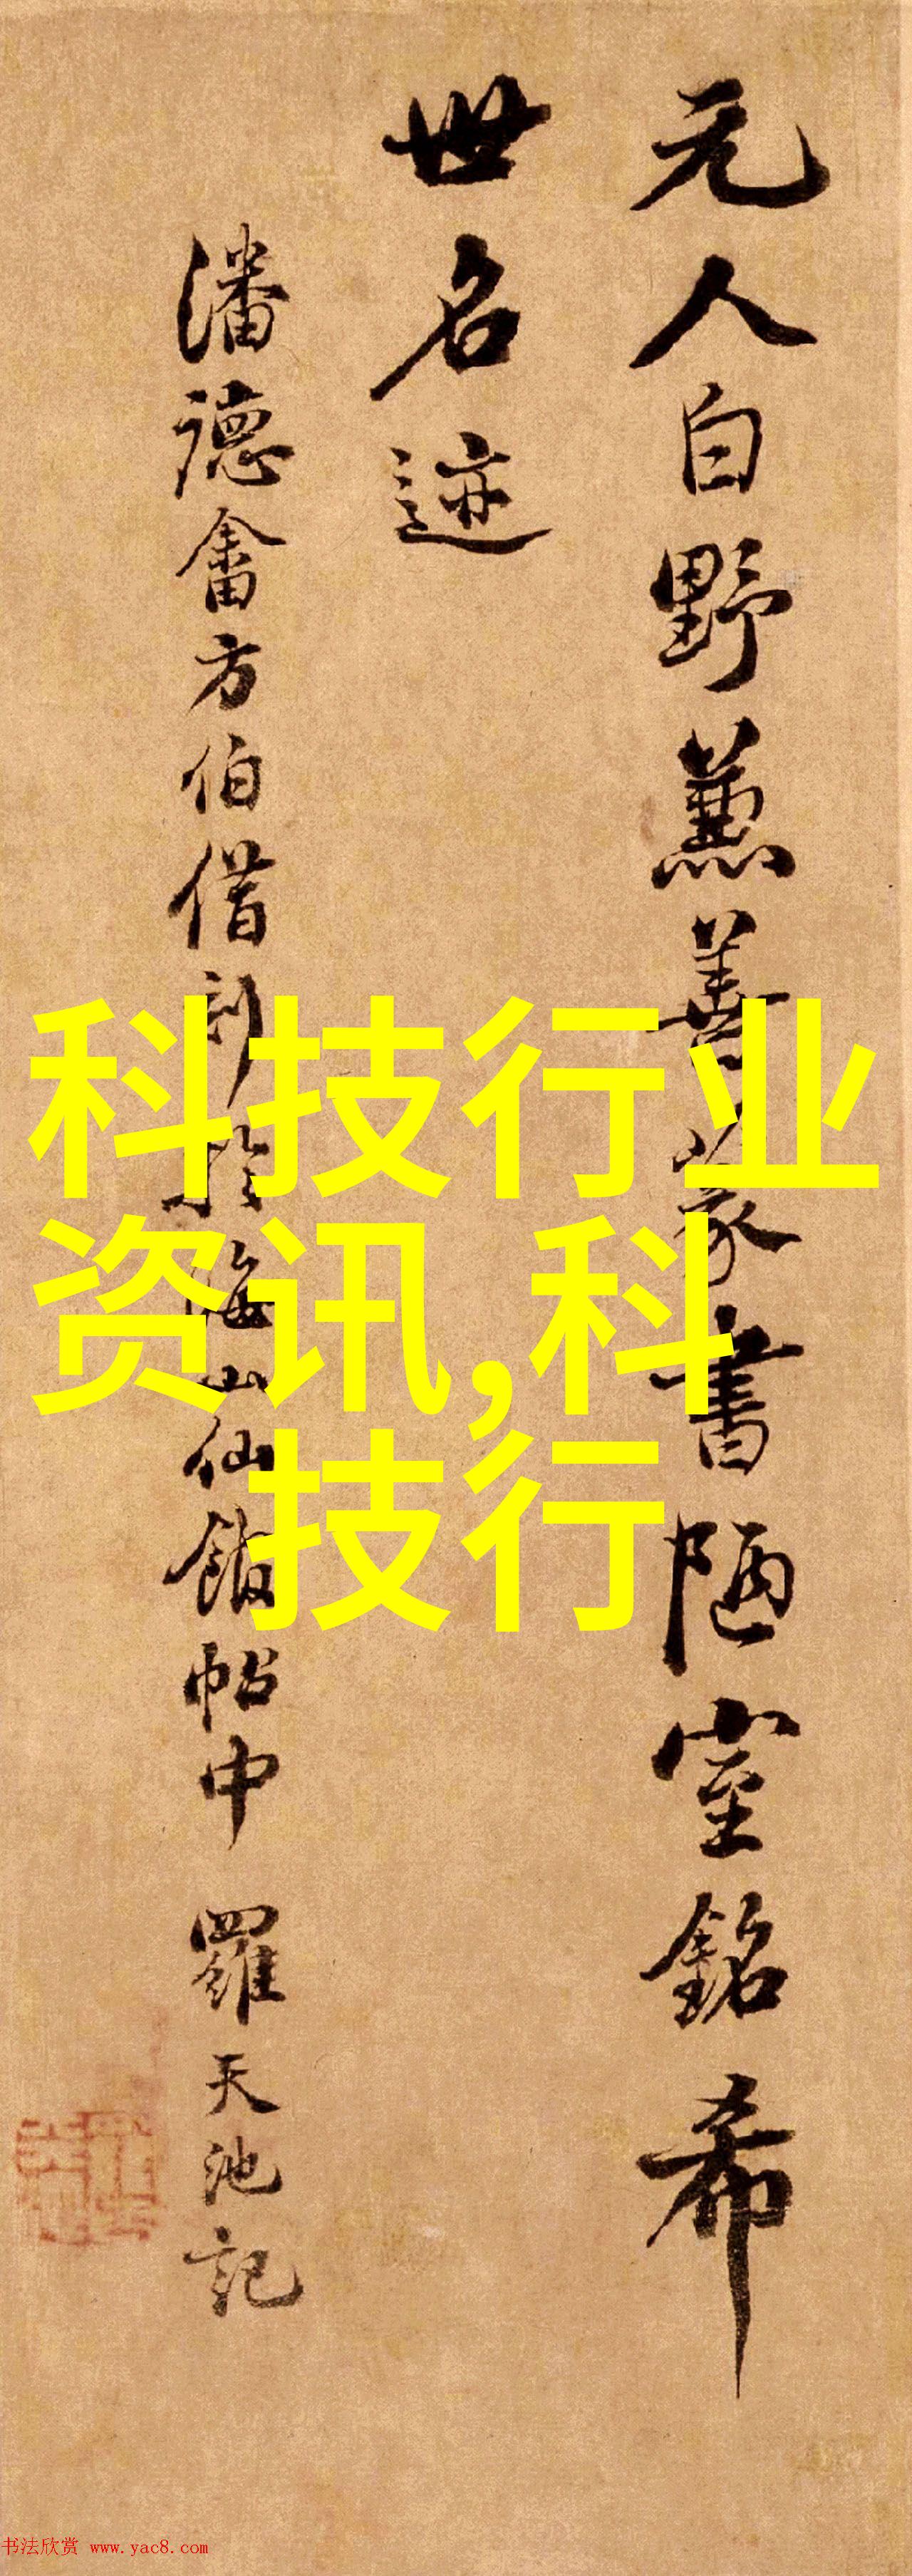 元人白野兼善篆書陋室銘希
世名迹
潘德畬方伯借刻於海山仙館帖中 羅天池記
科技行业
资讯,科
技行
书法欣赏 www.yac8.com